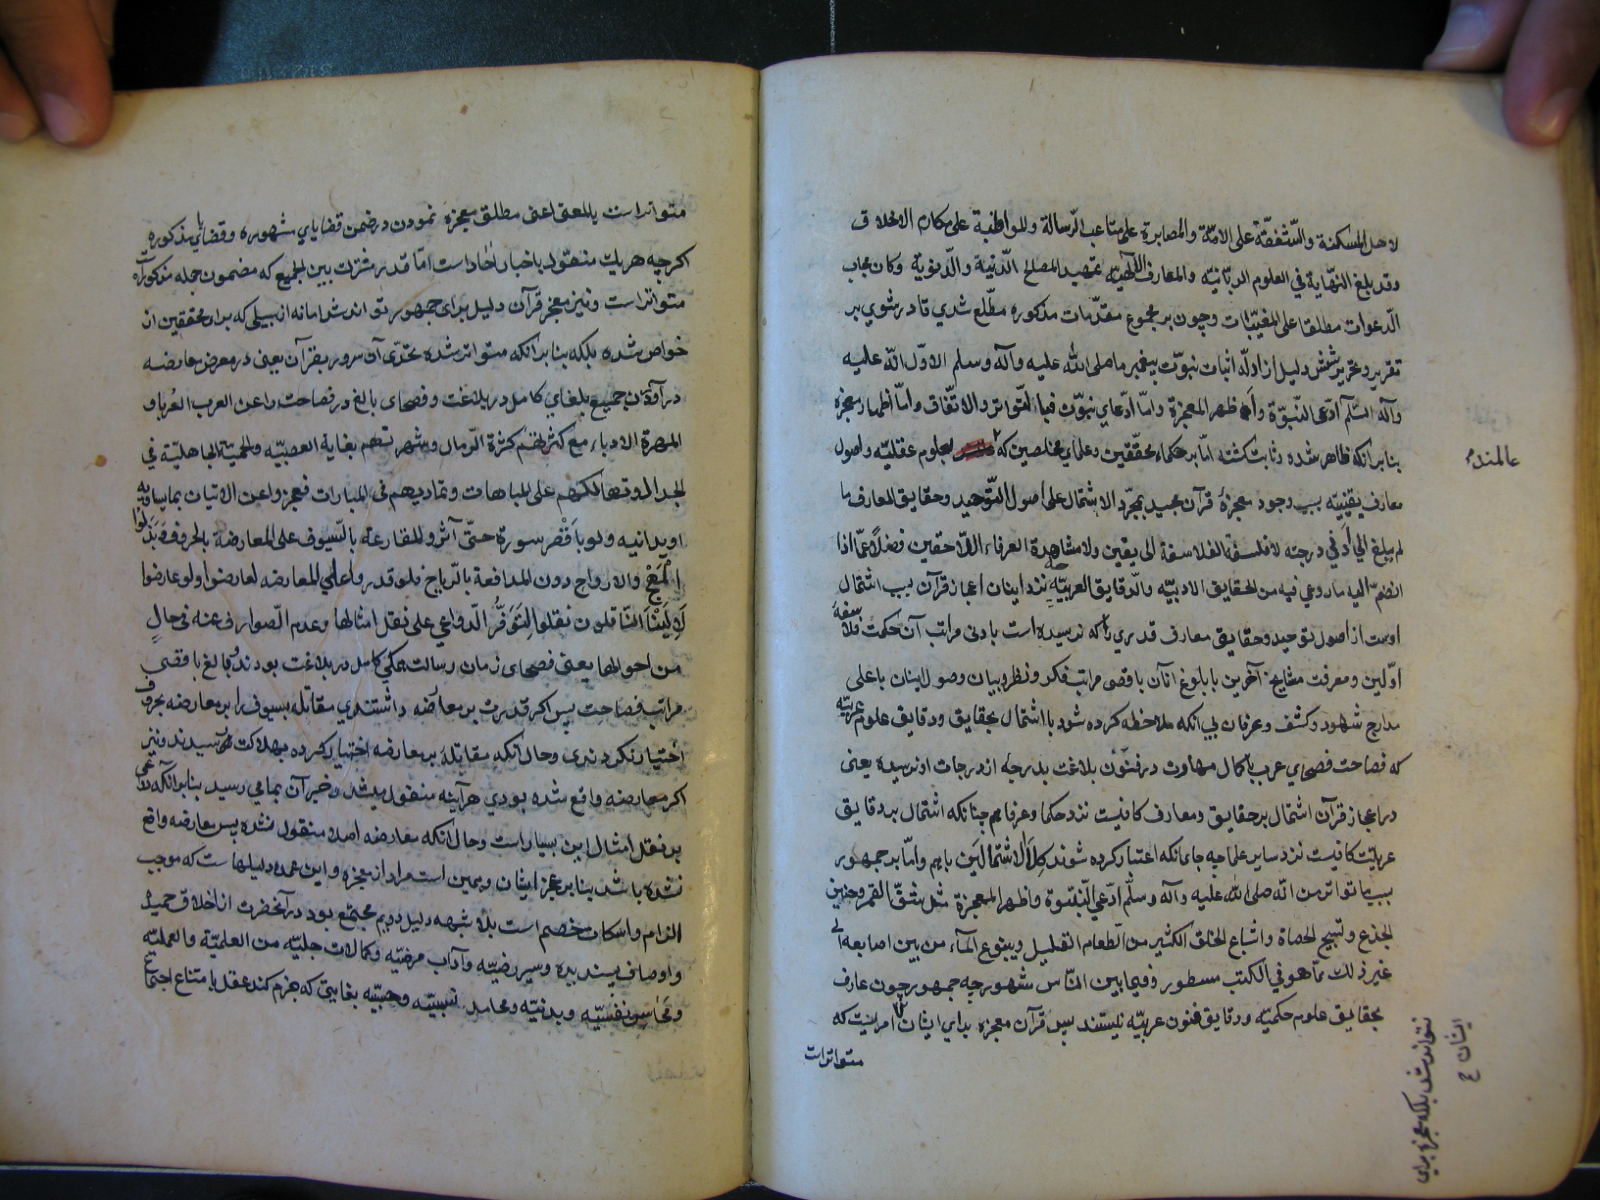 لاهل المسكنة والشفقة على الامّة والمصابرة على متاعب الرسالة وللمواظبة على مكارم الاخلاق
وقد بلغ النهاية في العلوم الربّانيّه والمعارف الالهيّه تمهيد المصالح الدّنية والدّنويّة وكان مجاب
الدّعوات مطلقا على المغيّبات وچون بر مجموع مقدّمات مذكوره مطّلع شدي قادر شوي بر
تقرير وتحرير شش دليل از ادلّه اثبات نبوّت پيغمبر ما صلى الله عليه وآله وسلم الاوّل انّه عليه
وآله السّلم ادّعى النّبوّة وأظهر المعجزة وامّا ادّعاي نبوّت فبالتّواتر والاتّفاق وامّا اظهار معجزه
بنابر انكه ظاهر شده وثابت كشته امّا بر حكماء محقّقين وعلماي مخلصين كه بعلوم عقليّه واصول
عالمند
معارف يقينيّه بسبب وجود معجزهٔ قرآن مجيد بمجرّد الاشتمال على اصول التّوحيد وحقايق المعارف ما
لم يبلغ الى ادنى درجته لا فلسفة الفلاسفة الى يقين ولا مشاهدة العرفاء اللّاحقين فضلاً عمّا اذا
انضمّ اليه ما روعي فيه من الحقايق الادبيّه والدّقايق العربيّه نزد اينان اعجاز قرآن بسبب اشتمال
اوست از اصول توحيد وحقايق معارف قدري را كه نرسيده است بادنى مراتب آن حكمت فلاسفهٔ
اوّلين ومعرفت مشايخ آخرين با بلوغ آنان باقصى مراتب فكر ونظر وبيان وصول اينان باعلى
مدارج شهود وكشف وعرفان بي انكه ملاحظه كرده شود با اشتمال بحقايق ودقايق علوم عربيّه
كه فصاحت فصحاي عرب با كمال مهارت در فنون بلاغت بدرجهٔ از درجات او نرسيده يعنى
در اعجاز قرآن اشتمال بر حقايق ومعارف كافيست نزد حكما وعرفا هم چنانكه اشتمال بر دقايق
عربيّت كافيست نزد ساير علما چه جاى انكه اعتبار كرده شوند كلا الاشتمالين باهم وامّا بر جمهور
بسبب ما تواتر من انّه صلى الله عليه وآله وسلّم ادّعي النّبوّة واظهر المعجزة مثل شقّ القمر وحنين
الجذع وتسبيح الحصاة واشباع الخلق الكثير من الطعام القليل وينبوع المآء من بين اصابعه الى
غير ذلك ممّا هو في الكتب مسطور وفيما بين النّاس مشهور چه جمهور چون عارف
بحقايق علوم حكميّه ودقايق فنون عربيّه نيستند پس قرآن معجزه براي ايشان امريست كه
متواتر است
نتواند شد بلكه معجزه براي
ايشان ع
متواتر است بالمعنى اعنى مطلق معجزه نمودن در ضمن قضاياي مشهوره وقضاياي مذكوره
اكرچه هر يك منقول باخبار آحاد است امّا قدر مشترك بين الجميع كه مضمون جمله مذكورات
متواتر است ونيز معجز قرآن دليل براى جمهور تواند شد امّا نه از سبيلى كه براى محقّقين از
خواص شده بلكه بنابر انكه متواتر شده تحدّى آن سرور بقرآن يعنى در معرض معارضه
در آوردن جميع بلغاي كامل در بلاغت وفصحاى بالغ در فصاحت را عن العرب العرباء و
المهرة الادباء مع كثرتهم كثرة الرّمال وشهرتهم بغاية العصبيّه والحميّة الجاهليّة في
الجدال وتهالكهم على المباهات وتماديهم في المبارات فعجزوا عن الاتيان بما يساويه
او يدانيه ولو باقصر سورة حتّى آثروا المقارعة بالسّيوف على المعارضة بالحروف وبذلوا
المهج والارواح دون المدافعة بالرّياح فلو قدروا على المعارضه لعارضوا ولو عارضوا
لنقل الينا النّاقلون نقلوا لتوفّر الدّواعي على نقل امثالها وعدم الصّوارف عنه في حال
من احوالها يعنى فصحاى زمان رسالت همكي كامل در بلاغت بودند وبالغ باقصى
مراتب فصاحت پس اكر قدرت بر معارضه داشتندي مقابله بسيوف را بر معارضه بحروف
اختيار نكردندى وحال انكه مقابله بر معارضه اختيار كرده بهلاكت رسيدند ونيز
اكر معارضه واقع شده بودي هر آينه منقول ميشد وخبر آن بما مي رسيد بنابر انكه دواعى
بر نقل امثال اين بسيار است وحال انكه معارضه اصلا منقول نشده پس معارضه واقع
نشده باشد بنابر عجز ايشان وهمين است مراد از معجزه واين عمده دليلهاست كه موجب
الزام واسكات خصم است بلا شبهه دليل دويم مجتمع بود در آنحضرت از اخلاق حميدهٔ
واوصاف پسنديده وسير رضيّه وآداب مرضيّه وكمالات جليّه من العلميّة والعمليّه
ومحاسن نفسيّه وبدنيّه ومحامد نسبيّه وحسبيّه بغايتى كه جزم كند عقل بامتناع اجتماع